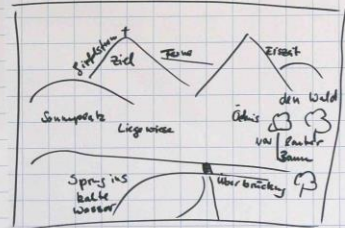 Gipfelsturm
Ziel
Ferne
Eiszeit
den Wald
Sonnenplatz
Liegewiese
Ödnis
vor lauter
Bäum
Sprung ins
kalte
Wasser
Überbrückung